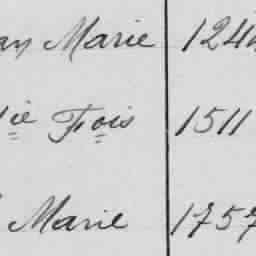 an Marie 124
ie Fois 1511
Marie 1757